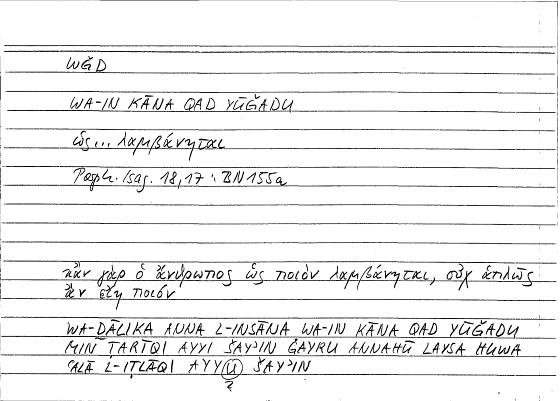 WǦD
WA-IN KĀNA QAD YŪǦADU
ὡς... λαμβάνηται
Porph. Isag. 18,17 : BN 155a
κἂν γὰρ ὁ ἄνθρωπος ὡς ποιὸν λαμβάνηται, οὐχ ἁπλῶς
ἂν εἴη ποιόν
WA-ḎĀLIKA ANNA L-INSĀNA WA-IN KĀNA QAD YŪǦADU
MIN ṬARĪQI AYYI ŠAYʾIN ĠAYRU ANNAHŪ LAYSA HUWA
ʿALĀ L-IṬLĀQI AYYU ŠAYʾIN
?